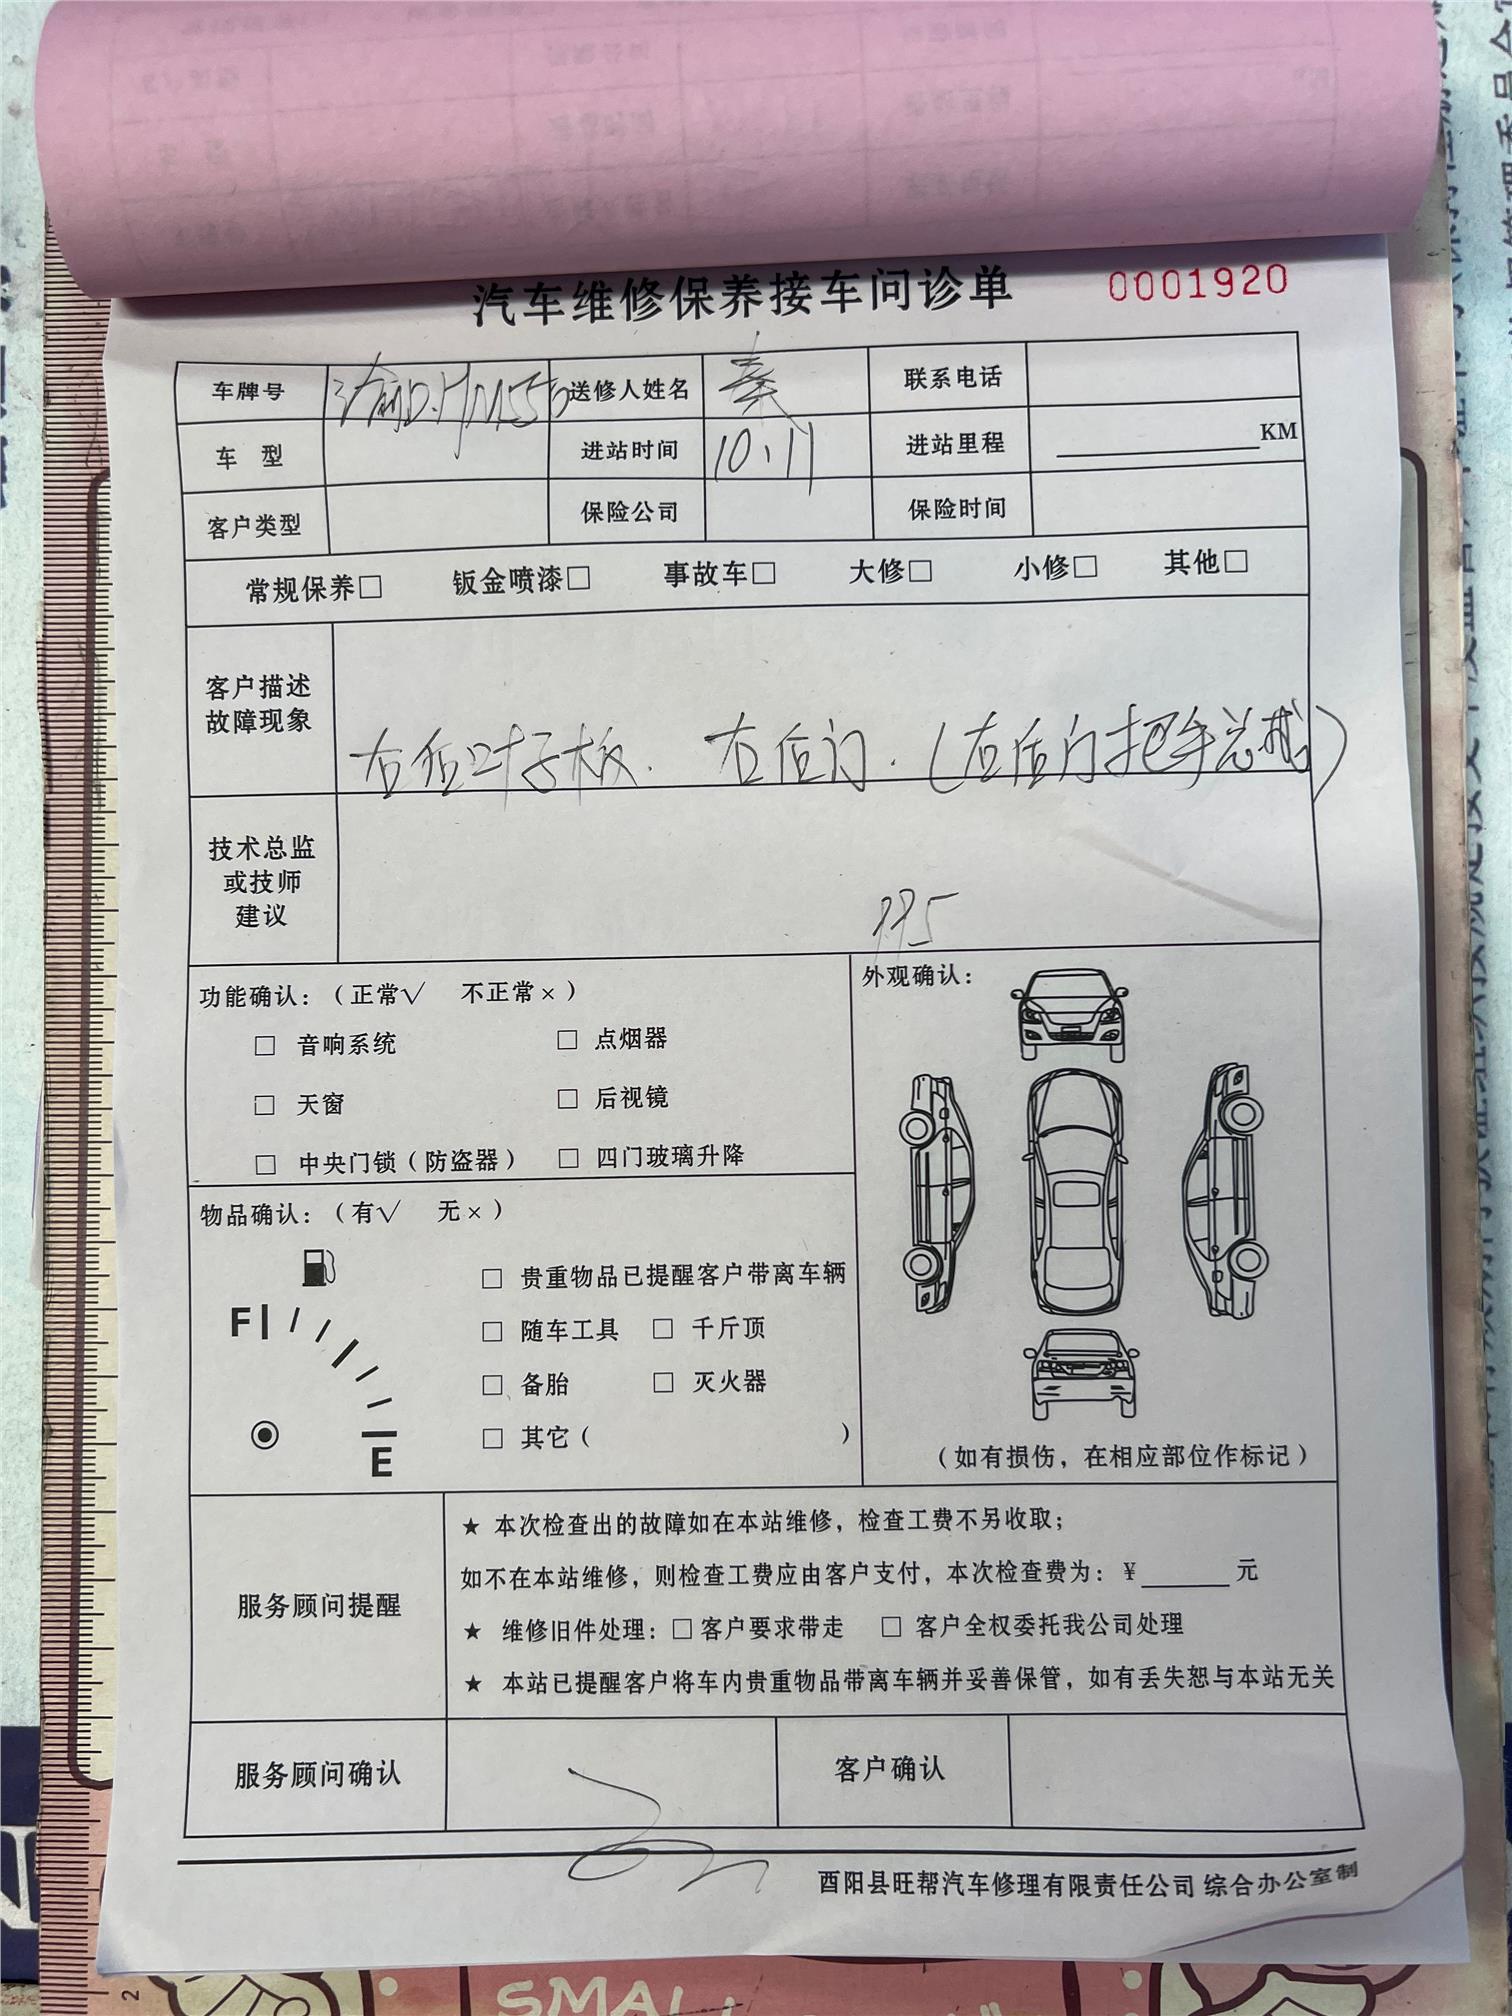 汽车维修保养接车问诊单 0001920
车牌号 渝D.HM55 送修人姓名 秦 联系电话
车 型 进站时间 10.11 进站里程 KM
客户类型 保险公司 保险时间
常规保养□ 钣金喷漆□ 事故车□ 大修□ 小修□ 其他□
客户描述
故障现象
右后叶子板. 右后门.(右后门把手总成)
技术总监
或技师
建议
功能确认:(正常√ 不正常×)
□ 音响系统 □ 点烟器
□ 天窗 □ 后视镜
□ 中央门锁(防盗器) □ 四门玻璃升降
外观确认:
(如有损伤,在相应部位作标记)
物品确认:(有√ 无×)
F
E
□ 贵重物品已提醒客户带离车辆
□ 随车工具 □ 千斤顶
□ 备胎 □ 灭火器
□ 其它( )
服务顾问提醒
★ 本次检查出的故障如在本站维修,检查工费不另收取;
如不在本站维修,则检查工费应由客户支付,本次检查费为:¥______元
★ 维修旧件处理:□客户要求带走 □ 客户全权委托我公司处理
★ 本站已提醒客户将车内贵重物品带离车辆并妥善保管,如有丢失恕与本站无关
服务顾问确认 客户确认
酉阳县旺帮汽车修理有限责任公司 综合办公室制
2
SMALL